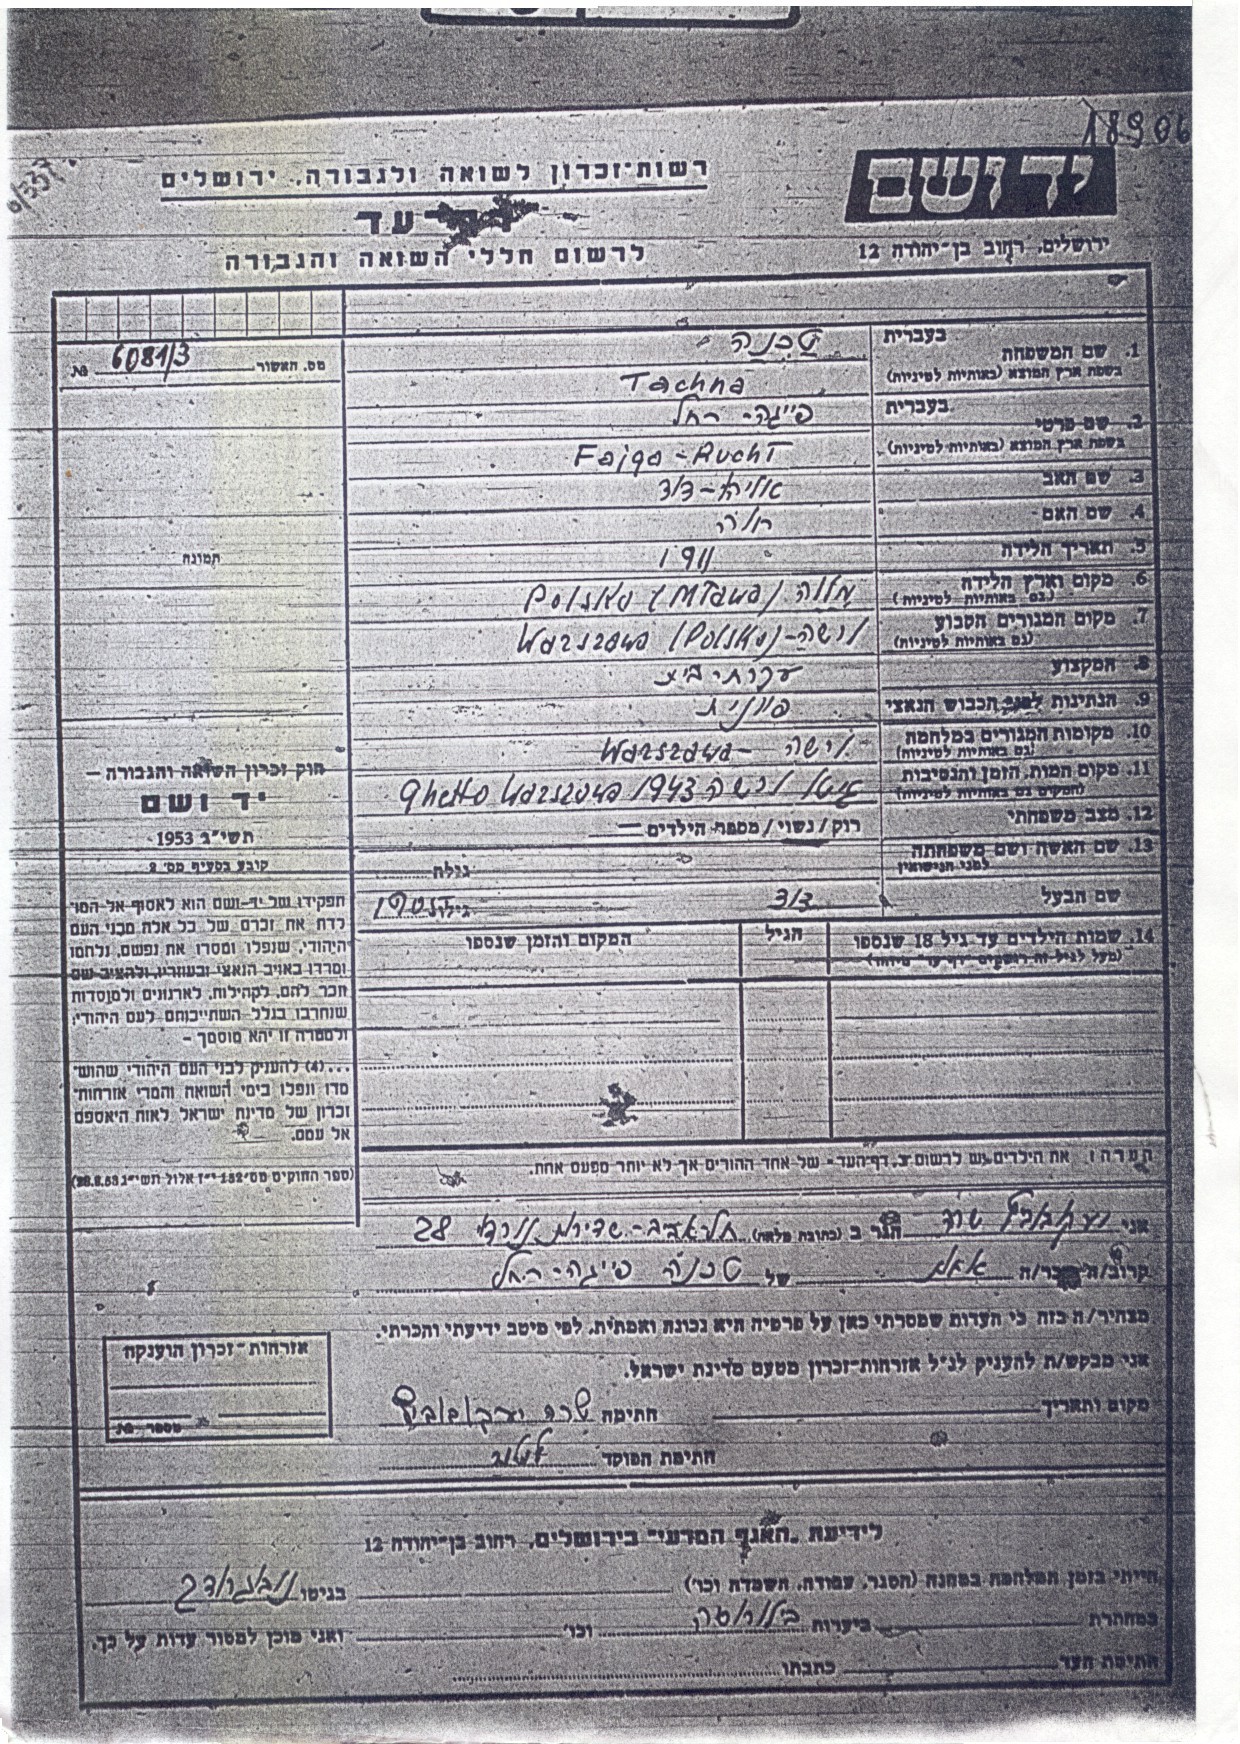 18906
יד ושם
ירושלים, רחוב בן־יהודה 12
רשות־זכרון לשואה ולגבורה, ירושלים
עד
לרשום חללי השואה והגבורה
מס. האשור 6081/3
תמונה
1. שם המשפחה
בעברית
טכנה
בשפת ארץ המוצא (באותיות לטיניות)
Tachna
2. שם פרטי
בעברית
פייגה - רחל
בשפת ארץ המוצא (באותיות לטיניות)
Fajga -
3. שם האב
אליה - דוד
4. שם האם
חלה
5. תאריך הלידה
1911
6. מקום וארץ הלידה
(גם באותיות לטיניות)
מלוה Polska (Mława)
7. מקום המגורים הקבוע
(גם באותיות לטיניות)
ורשה - Warszawa (Polska)
8. המקצוע
עקרת-בית
9. הנתינות לפני הכבוש הנאצי
פולנית
10. מקומות המגורים במלחמה
(גם באותיות לטיניות)
ורשה - Warszawa
11. מקום המות, הזמן והנסיבות
(המקום גם באותיות לטיניות)
גיטו ורשה 1943 Ghetto Warszawa
12. מצב משפחתי
רוק/נשוי/מספר הילדים —
13. שם האשה ושם משפחתה
לפני הנישואין
גילה
שם הבעל
דוד
גילו 1905
14. שמות הילדים עד גיל 18 שנספו
(מעל לגיל זה רושמים "דף־עד" מיוחד)
הגיל
המקום והזמן שנספו
חוק זכרון השואה והגבורה —
יד ושם
תשי"ג 1953
קובע בסעיף מס' 2
תפקידו של יד־ושם הוא לאסוף אל המו־
לדת את זכרם של כל אלה מבני העם
היהודי, שנפלו ומסרו את נפשם, נלחמו
ומרדו באויב הנאצי ובעוזריו, ולהציב שם
וזכר להם, לקהילות, לארגונים ולמוסדות
שנחרבו בגלל השתייכותם לעם היהודי;
ולמטרה זו יהא מוסמך —
...(4) להעניק לבני העם היהודי שהוש־
מדו ונפלו בימי השואה והמרי אזרחות־
זכרון של מדינת ישראל לאות היאספם
אל עמם.
(ספר החוקים מס' 132 י"ז אלול תשי"ג 28.8.53)
הערה: את הילדים יש לרשום ב"דף־העד" של אחד ההורים אך לא יותר מפעם אחת.
אני יעקבוביץ שרה הגר ב (כתובת מלאה) תל אביב - שדירות נורדאו 28
קרוב/ה מכר/ה אחות של טכנה פייגה - רחל
מצהיר/ה בזה כי העדות שמסרתי כאן על פרטיה היא נכונה ואמתית, לפי מיטב ידיעתי והכרתי.
אני מבקש/ת להעניק לנ"ל אזרחות־זכרון מטעם מדינת ישראל.
מקום ותאריך
חתימה שרה יעקבוביץ
חתימת הפוקד
אזרחות־זכרון הוענקה
מספר
לידיעת "האגף המדעי" בירושלים, רחוב בן־יהודה 12
הייתי בזמן המלחמה במחנה (הסגר, עבודה, השמדה וכו')
בגיטו נובוגרודק
במחתרת ביערות בילורוסיה וכו' ואני מוכן למסור עדות על כך.
חתימת העד כתבתו